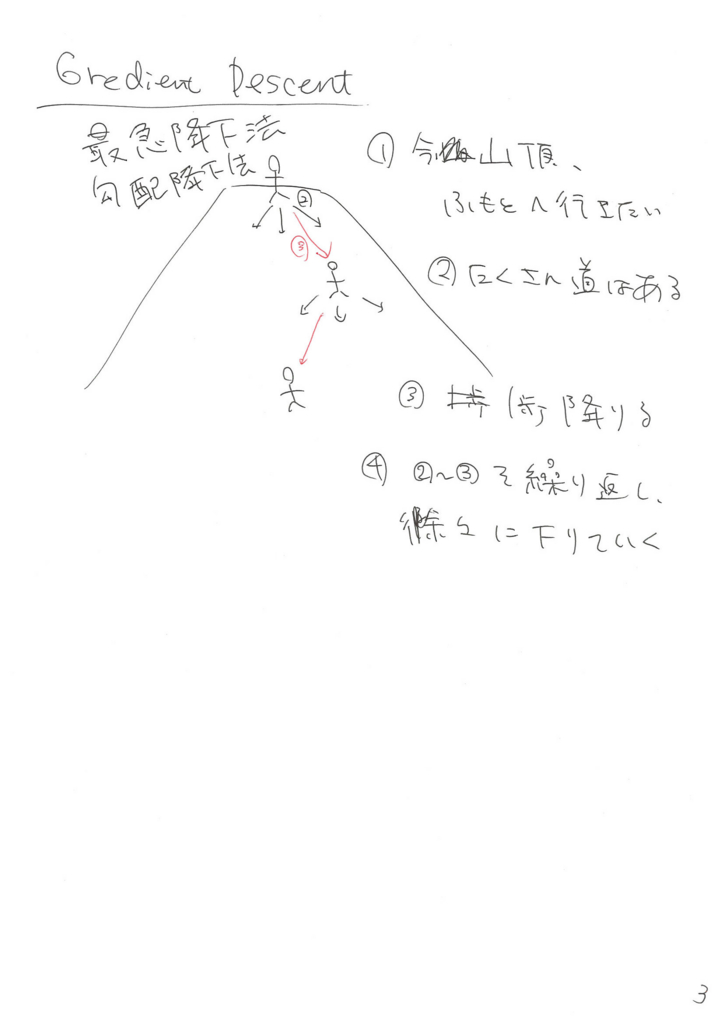 Gredient Descent
最急降下法
勾配降下法
① 今山頂、
ふもとへ行きたい
② たくさん道はある
③ 1歩降りる
④ ②~③を繰り返し、
徐々に下りていく
②
③
3